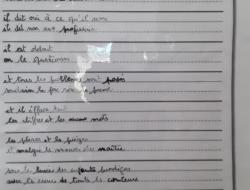 il dit oui à ce qu'il aime
il dit non au professeur
il est debout
on le questionne
et tous les problèmes sont posés
soudain le fou rire le prend
et il efface tout
les chiffres et les mots
les dates et les
et malgré les menaces du maître
sous les huées des enfants prodiges
avec les craies de toutes les couleurs